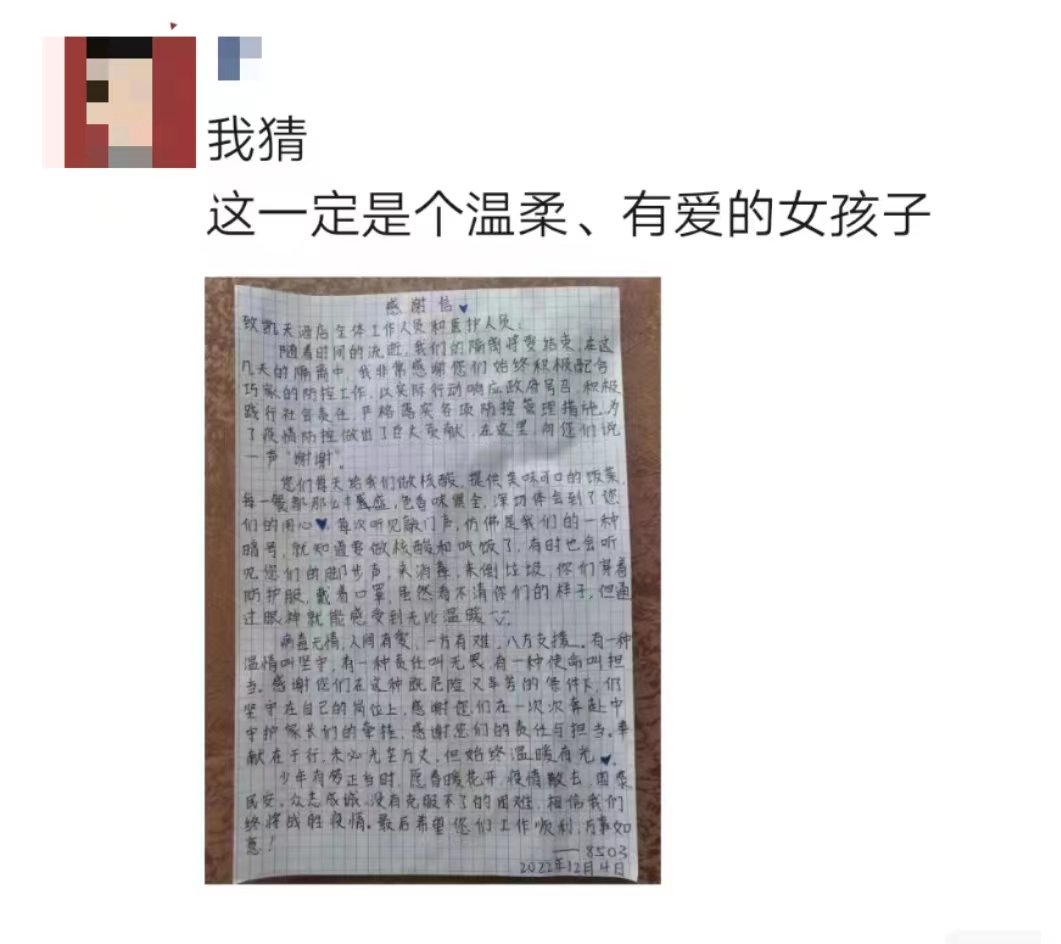 我猜
这一定是个温柔、有爱的女孩子
感谢信
致凯天酒店全体工作人员和医护人员:
随着时间的流逝,我们的隔离将要结束,在这
几天的隔离中,我非常感谢您们始终积极配合
巧家的防控工作,以实际行动响应政府号召,积极
践行社会责任,严格落实各项防控管理措施,为
了疫情防控做出了巨大贡献,在这里,向您们说
一声“谢谢”。
您们每天给我们做核酸,提供美味可口的饭菜,
每一餐都那么丰盛,色香味俱全,深切体会到了您
们的用心 每次听见敲门声,仿佛是我们的一种
暗号,就知道要做核酸和吃饭了,有时也会听
见您们的脚步声,来消毒,来倒垃圾,你们穿着
防护服,戴着口罩,虽然看不清你们的样子,但通
过眼神就能感受到无比温暖
病毒无情,人间有爱,一方有难,八方支援。有一种
温情叫坚守,有一种责任叫无畏,有一种使命叫担
当。感谢您们在这种既危险又辛苦的条件下,仍
坚守在自己的岗位上,感谢您们在一次次奔赴中
守护家长们的牵挂,感谢您们的责任与担当。奉
献在于行,未必光芒万丈,但始终温暖有光
少年有梦正当时,愿春暖花开,疫情散去,国泰
民安。众志成城,没有克服不了的困难,相信我们
终将战胜疫情。最后希望您们工作顺利,万事如
意!
——8503
2022年12月4日